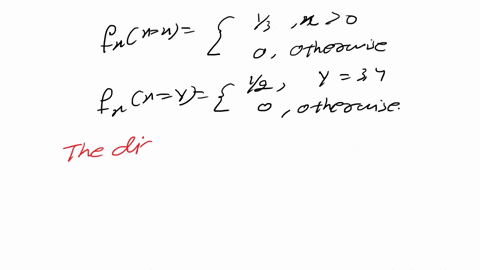 fₙ(n=n)= { 1/3 , n > 0
0, otherwise
fₙ(n=Y)= { 1/2, Y = 3,4
0, otherwise.
The dir